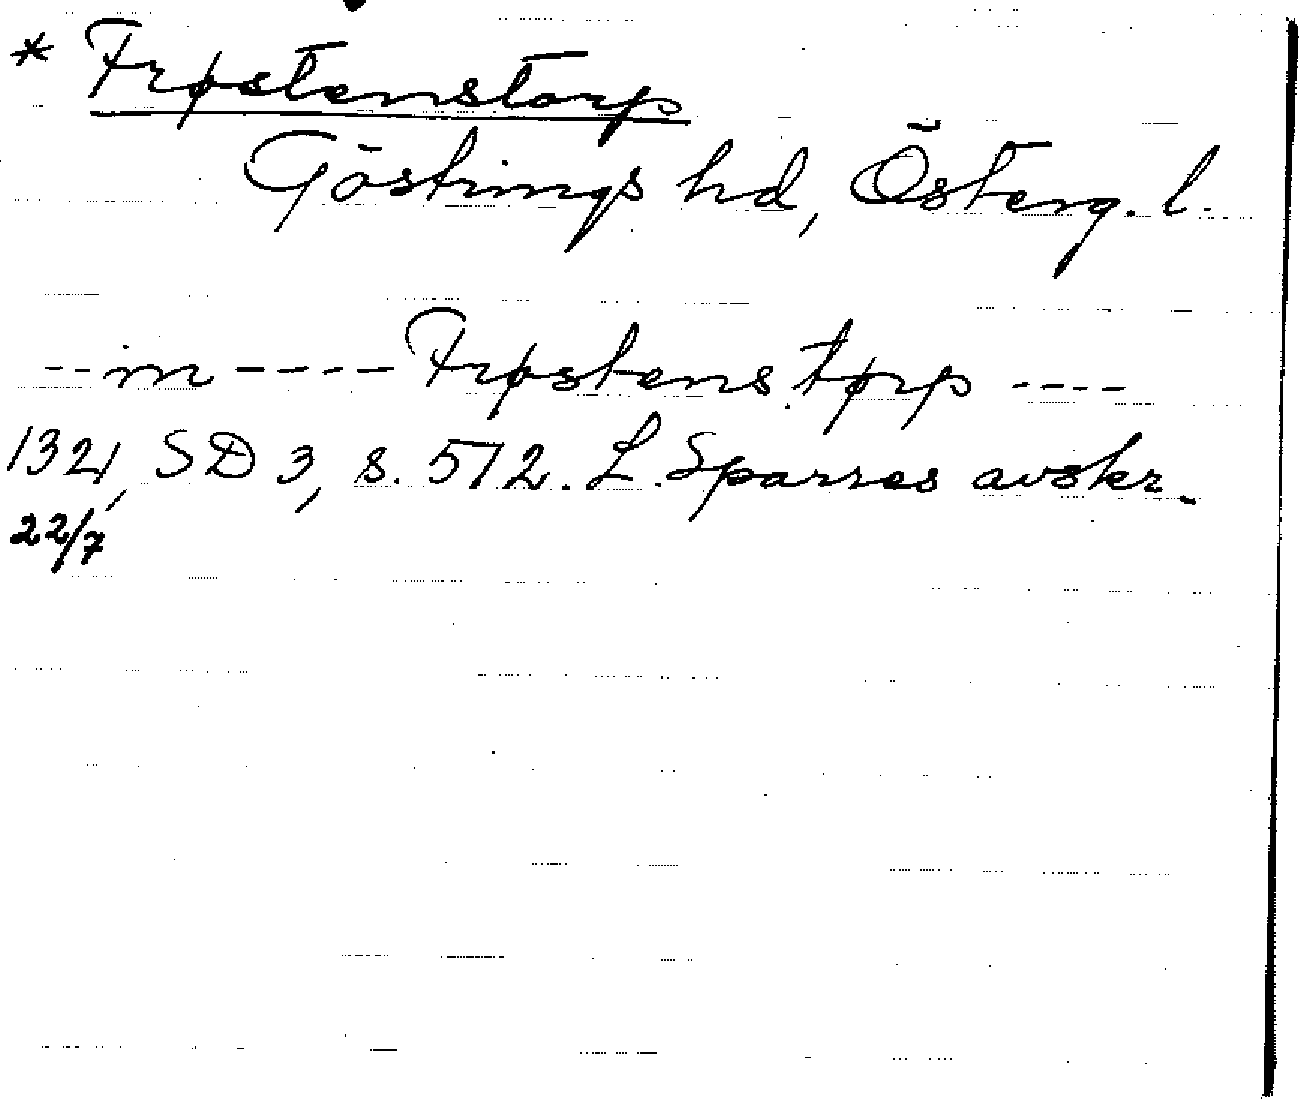 * Frøstenstorp
Göstrings hd, Österg. l.
-- in ---- Frøstens tørp ----
1321, SD 3, s. 512. L. Sparres avskr.
22/7